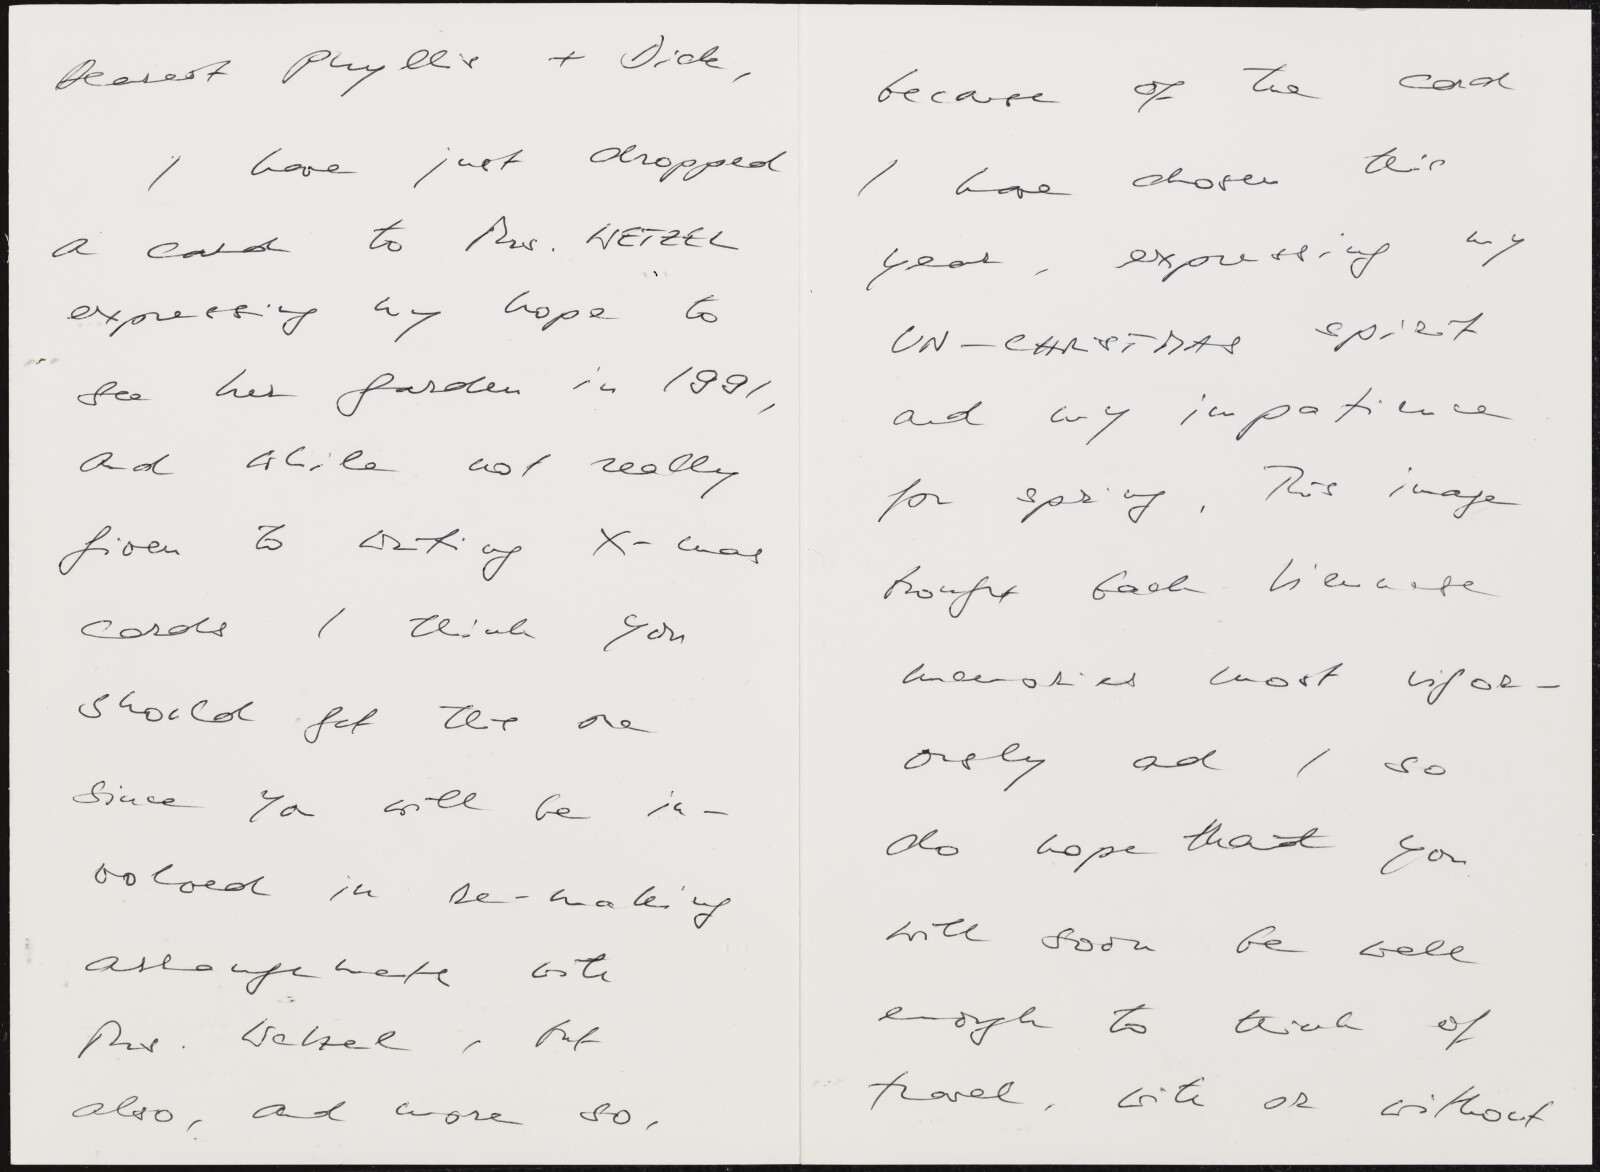 Dearest Phyllis + Dick,
I have just dropped
a card to Mrs. WETZEL
expressing my hope to
see her garden in 1991,
and while not really
given to writing X-mas
cards I think you
should get this one
since you will be in-
volved in re-making
arrangements with
Mrs. Wetzel, but
also, and more so,
because of the card
I have chosen this
year, expressing my
UN-CHRISTMAS spirit
and my impatience
for spring. This image
brought back Viennese
memories most vigor-
ously and I so
do hope that you
will soon be well
enough to think of
travel, with or without